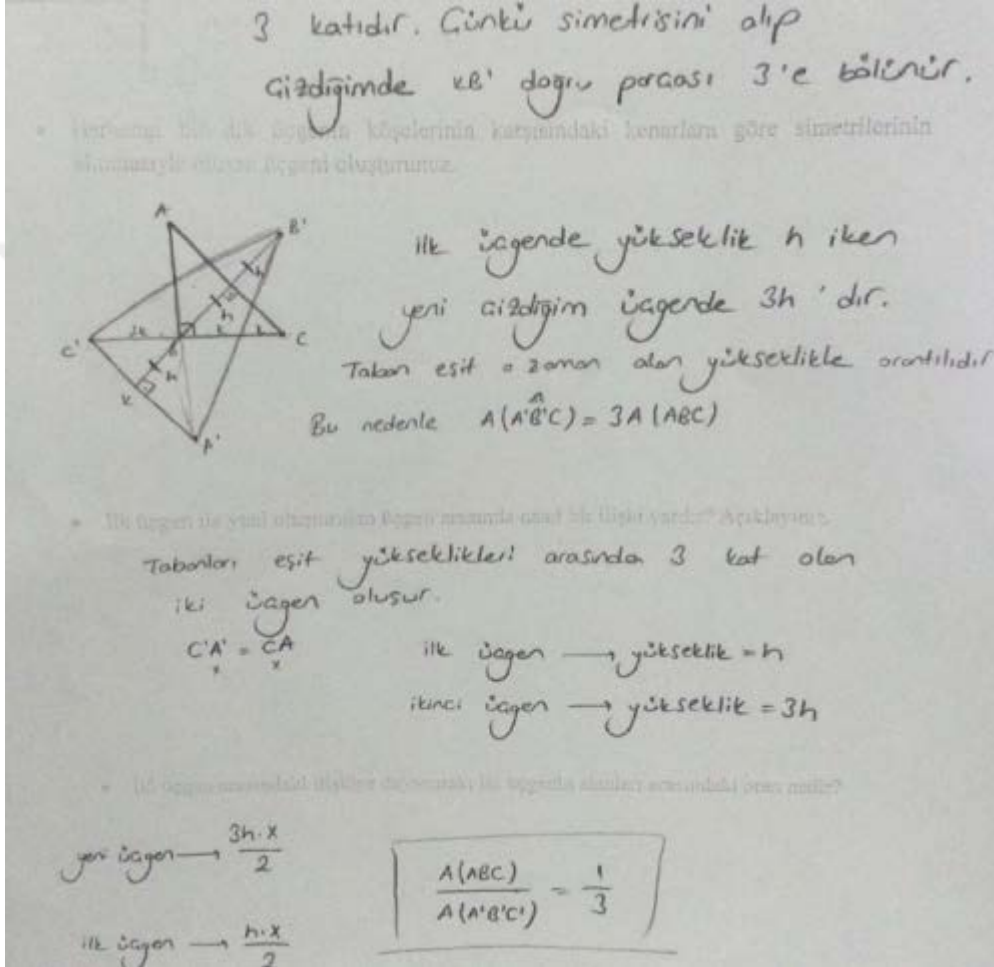 3 katıdır. Çünkü simetrisini alıp
çizdiğimde KB' doğru parçası 3'e bölünür.
• Herhangi bir dik üçgenin köşelerinin karşısındaki kenarlara göre simetrilerinin
alınmasıyla oluşan üçgeni oluşturunuz.
A
B'
h
h
C'
2k
B
k
k
C
h
K
A'
ilk üçgende yükseklik h iken
yeni çizdiğim üçgende 3h 'dır.
Taban eşit o zaman alan yükseklikle orantılıdır
Bu nedenle A(A'B'C) = 3A(ABC)
• İlk üçgen ile yeni oluşturulan üçgen arasında nasıl bir ilişki vardır? Açıklayınız.
Tabanları eşit yükseklikleri arasında 3 kat olan
iki üçgen oluşur.
C'A' = CA
x x
ilk üçgen → yükseklik = h
ikinci üçgen → yükseklik = 3h
• İki üçgen arasındaki ilişkiye iki üçgenin alanları arasındaki oran nedir?
yeni üçgen → 3h.x
2
A(ABC) / A(A'B'C') = 1/3
ilk üçgen → h.x
2